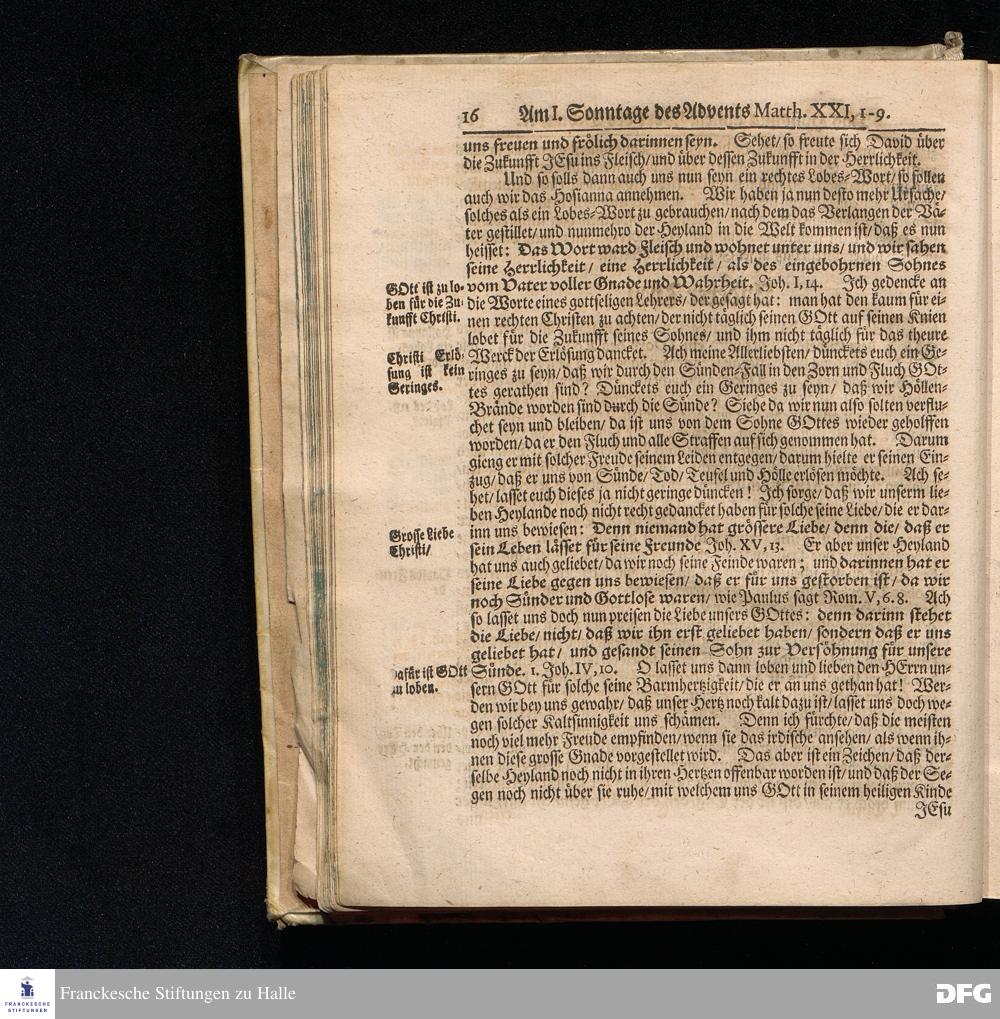 16 Am I. Sonntage des Advents Matth. XXI, 1-9.
uns freuen und frölich darinnen seyn. Sehet/ so freute sich David über
die Zukunfft JEsu ins Fleisch/ und über dessen Zukunfft in der Herrlichkeit.
Und so solls dann auch uns nun seyn ein rechtes Lobes-Wort/ so sollen
auch wir das Hosianna annehmen. Wir haben ja nun desto mehr Ursache/
solches als ein Lobes-Wort zu gebrauchen/ nach dem das Verlangen der Vä-
ter gestillet/ und nunmehro der Heyland in die Welt kommen ist/ daß es nun
heisset: Das Wort ward Fleisch und wohnet unter uns/ und wir sahen
seine Herrlichkeit/ eine Herrlichkeit/ als des eingebohrnen Sohnes
vom Vater voller Gnade und Wahrheit. Joh. I, 14. Ich gedencke an
die Worte eines gottseligen Lehrers/ der gesagt hat: man hat den kaum für ei-
nen rechten Christen zu achten/ der nicht täglich seinen GOtt auf seinen Knien
lobet für die Zukunfft seines Sohnes/ und ihm nicht täglich für das theure
Werck der Erlösung dancket. Ach meine Allerliebsten/ dünckets euch ein Ge-
ringes zu seyn/ daß wir durch den Sünden-Fall in den Zorn und Fluch GOt-
tes gerathen sind? Dünckets euch ein Geringes zu seyn/ daß wir Höllen-
Brände worden sind durch die Sünde? Siehe da wir nun also solten verflu-
chet seyn und bleiben/ da ist uns von dem Sohne GOttes wieder geholffen
worden/ da er den Fluch und alle Straffen auf sich genommen hat. Darum
gieng er mit solcher Freude seinem Leiden entgegen/ darum hielte er seinen Ein-
zug/ daß er uns von Sünde/ Tod/ Teufel und Hölle erlösen möchte. Ach se-
het/ lasset euch dieses ja nicht geringe düncken! Ich sorge/ daß wir unserm lie-
ben Heylande noch nicht recht gedancket haben für solche seine Liebe/ die er dar-
inn uns bewiesen: Denn niemand hat grössere Liebe/ denn die/ daß er
sein Leben lässet für seine Freunde Joh. XV, 13. Er aber unser Heyland
hat uns auch geliebet/ da wir noch seine Feinde waren; und darinnen hat er
seine Liebe gegen uns bewiesen/ daß er für uns gestorben ist/ da wir
noch Sünder und Gottlose waren/ wie Paulus sagt Rom. V, 6. 8. Ach
so lasset uns doch nun preisen die Liebe unsers GOttes: denn darinn stehet
die Liebe/ nicht/ daß wir ihn erst geliebet haben/ sondern daß er uns
geliebet hat/ und gesandt seinen Sohn zur Versöhnung für unsere
Sünde. 1. Joh. IV, 10. O lasset uns dann loben und lieben den HErrn un-
sern GOtt für solche seine Barmhertzigkeit/ die er an uns gethan hat! Wer-
den wir bey uns gewahr/ daß unser Hertz noch kalt dazu ist/ lasset uns doch we-
gen solcher Kaltsinnigkeit uns schämen. Denn ich fürchte/ daß die meisten
noch viel mehr Freude empfinden/ wenn sie das irdische ansehen/ als wenn ih-
nen diese grosse Gnade vorgestellet wird. Das aber ist ein Zeichen/ daß der-
selbe Heyland noch nicht in ihren Hertzen offenbar worden ist/ und daß der Se-
gen noch nicht über sie ruhe/ mit welchem uns GOtt in seinem heiligen Kinde
JEsu
GOtt ist zu lo-
ben für die Zu-
kunfft Christi.
Christi Erlö-
sung ist kein
Geringes.
Grosse Liebe
Christi/
dafür ist GOtt
zu loben.
FRANCKESCHE
STIFTUNGEN
Franckesche Stiftungen zu Halle
DFG